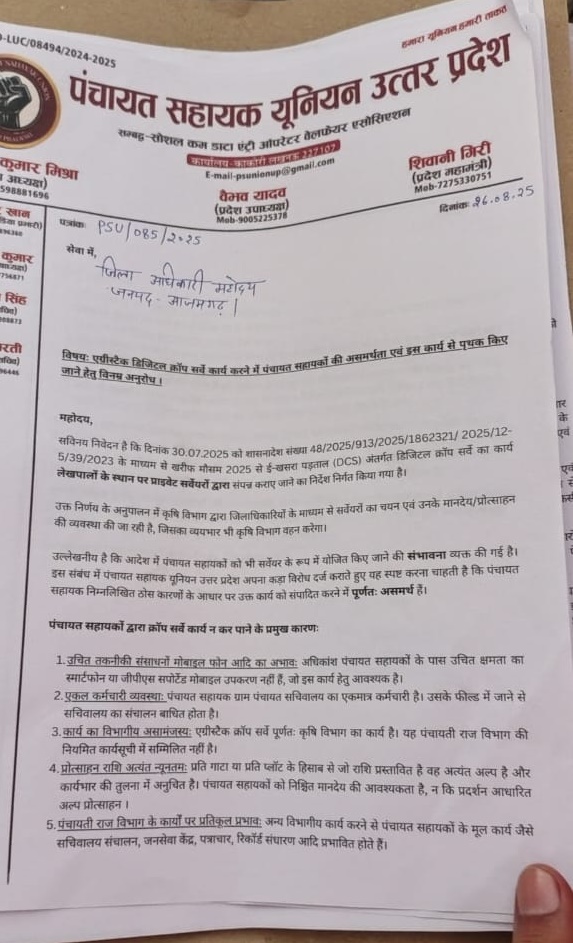 -LUC/08494/2024-2025
हमारा यूनियन हमारी ताकत
पंचायत सहायक यूनियन उत्तर प्रदेश
सम्बद्ध-सोशल कम डाटा एंट्री ऑपरेटर वेलफेयर एसोसिएशन
कार्यालय-काकोरी लखनऊ 227107
E-mail-psunionup@gmail.com
कुमार मिश्रा
अध्यक्ष)
598881696
वैभव यादव
(प्रदेश उपाध्यक्ष)
Mob-9005225378
शिवानी गिरी
(प्रदेश महामंत्री)
Mob-7275330751
खान
प्रभारी)
कुमार
सिंह
रती
पत्रांक: PSU/085/2025
दिनांक: 26.08.25
सेवा में,
जिला अधिकारी महोदय
जनपद - आजमगढ़।
विषय: एग्रीस्टैक डिजिटल क्रॉप सर्वे कार्य करने में पंचायत सहायकों की असमर्थता एवं इस कार्य से पृथक किए
जाने हेतु विनम्र अनुरोध।
महोदय,
सविनय निवेदन है कि दिनांक 30.07.2025 को शासनादेश संख्या 48/2025/913/2025/1862321/ 2025/12-
5/39/2023 के माध्यम से खरीफ मौसम 2025 से ई-खसरा पड़ताल (DCS) अंतर्गत डिजिटल क्रॉप सर्वे का कार्य
लेखपालों के स्थान पर प्राइवेट सर्वेयरों द्वारा संपन्न कराए जाने का निर्देश निर्गत किया गया है।
उक्त निर्णय के अनुपालन में कृषि विभाग द्वारा जिलाधिकारियों के माध्यम से सर्वेयरों का चयन एवं उनके मानदेय/प्रोत्साहन
की व्यवस्था की जा रही है, जिसका व्ययभार भी कृषि विभाग वहन करेगा।
उल्लेखनीय है कि आदेश में पंचायत सहायकों को भी सर्वेयर के रूप में योजित किए जाने की संभावना व्यक्त की गई है।
इस संबंध में पंचायत सहायक यूनियन उत्तर प्रदेश अपना कड़ा विरोध दर्ज कराते हुए यह स्पष्ट करना चाहती है कि पंचायत
सहायक निम्नलिखित ठोस कारणों के आधार पर उक्त कार्य को संपादित करने में पूर्णतः असमर्थ हैं।
पंचायत सहायकों द्वारा क्रॉप सर्वे कार्य न कर पाने के प्रमुख कारणः
1. उचित तकनीकी संसाधनों मोबाइल फोन आदि का अभावः अधिकांश पंचायत सहायकों के पास उचित क्षमता का
स्मार्टफोन या जीपीएस सपोर्टेड मोबाइल उपकरण नहीं हैं, जो इस कार्य हेतु आवश्यक है।
2. एकल कर्मचारी व्यवस्थाः पंचायत सहायक ग्राम पंचायत सचिवालय का एकमात्र कर्मचारी है। उसके फील्ड में जाने से
सचिवालय का संचालन बाधित होता है।
3. कार्य का विभागीय असामंजस्यः एग्रीस्टैक क्रॉप सर्वे पूर्णतः कृषि विभाग का कार्य है। यह पंचायती राज विभाग की
नियमित कार्यसूची में सम्मिलित नहीं है।
4. प्रोत्साहन राशि अत्यंत न्यूनतमः प्रति गाटा या प्रति प्लॉट के हिसाब से जो राशि प्रस्तावित है वह अत्यंत अल्प है और
कार्यभार की तुलना में अनुचित है। पंचायत सहायकों को निश्चित मानदेय की आवश्यकता है, न कि प्रदर्शन आधारित
अल्प प्रोत्साहन ।
5. पंचायती राज विभाग के कार्यों पर प्रतिकूल प्रभावः अन्य विभागीय कार्य करने से पंचायत सहायकों के मूल कार्य जैसे
सचिवालय संचालन, जनसेवा केंद्र, पत्राचार, रिकॉर्ड संधारण आदि प्रभावित होते हैं।